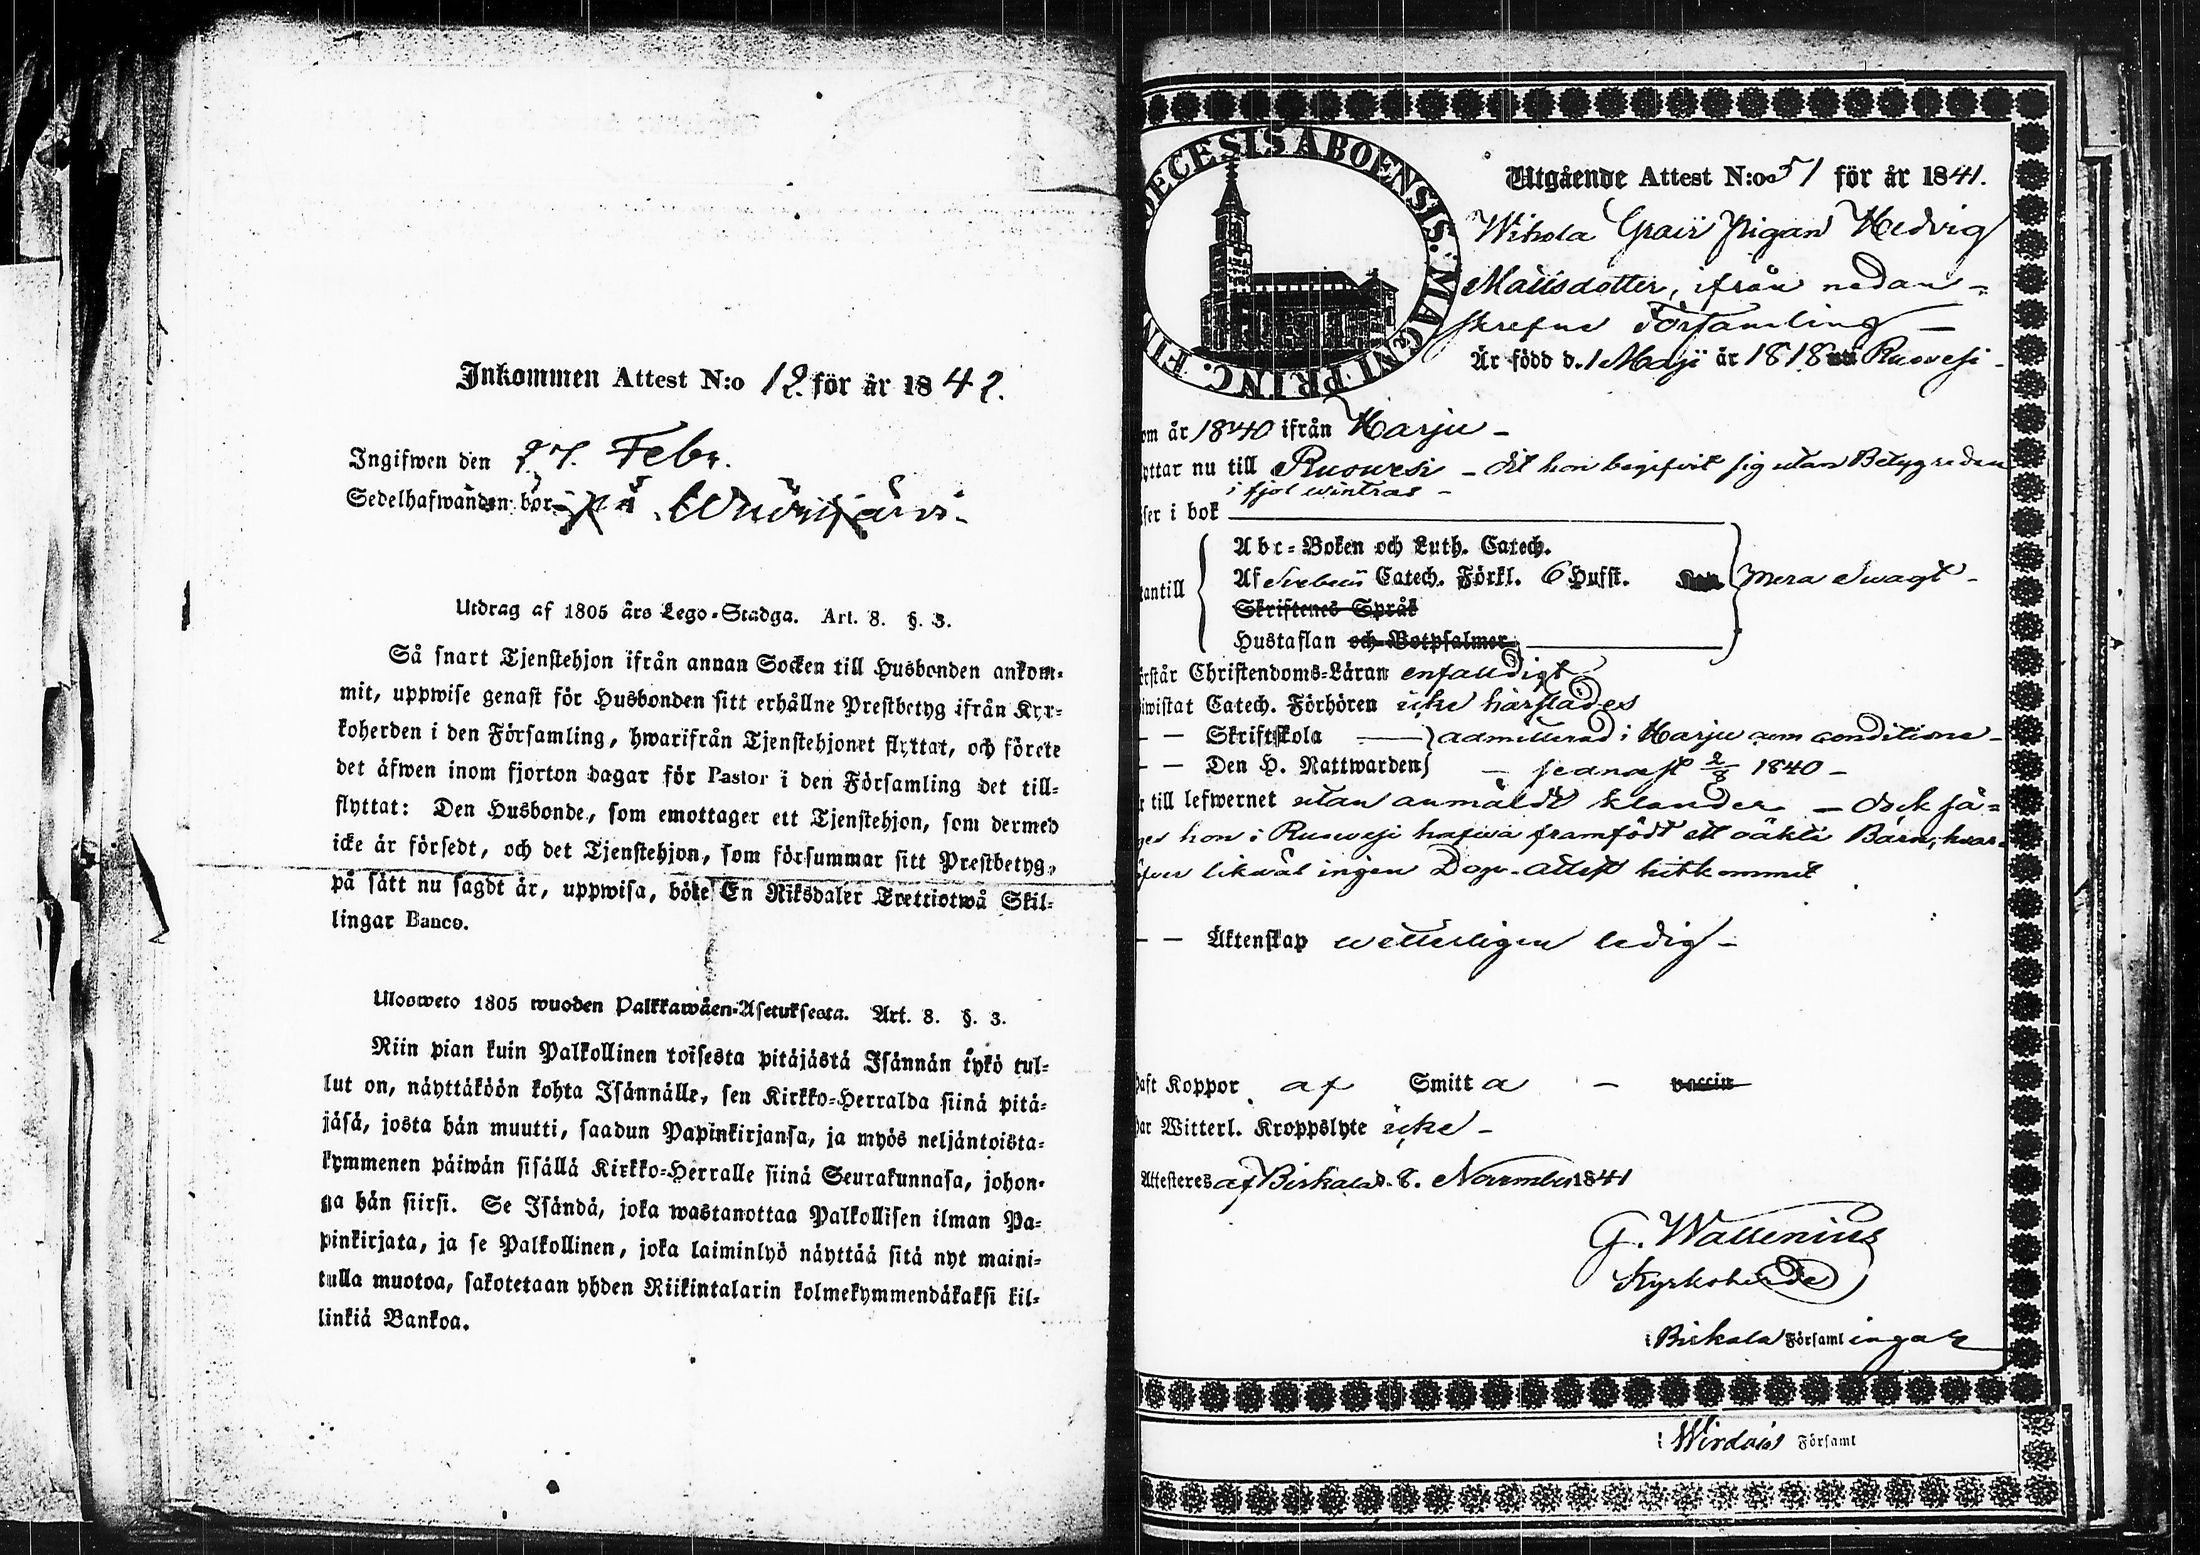 Inkommen Attest N:o 12. för år 1842.
Ingifwen den 27. Febr.
Sedelhafwanden bor på
Utdrag af 1805 års Lego-Stadga. Art. 8. §. 3.
Så snart Tjenstehjon ifrån annan Socken till Husbonden ankom-
mit, uppwise genast för Husbonden sitt erhållne Prestbetyg ifrån Kyr-
koherden i den Församling, hwarifrån Tjenstehjonet flyttat, och förete
det äfwen inom fjorton dagar för Pastor i den Församling det till-
flyttat: Den Husbonde, som emottager ett Tjenstehjon, som dermed
icke är försedt, och det Tjenstehjon, som försummar sitt Prestbetyg,
på sätt nu sagdt är, uppwisa, böte En Riksdaler Trettiotwå Skil-
lingar Banco.
Ulosweto 1805 wuoden Palkkawäen-Asetuksesta. Art. 8. §. 3.
Niin pian kuin Palkollinen toisesta pitäjästä Isännän tykö tul-
lut on, näyttäköön kohta Isännälle, sen Kirkko-Herralda siinä pitä-
jäsä, josta hän muutti, saadun Papinkirjansa, ja myös neljäntoista-
kymmenen päiwän sisällä Kirkko-Herralle siinä Seurakunnasa, johon-
ga hän siirsi. Se Isändä, joka wastanottaa Palkollisen ilman Pa-
pinkirjata, ja se Palkollinen, joka laiminlyö näyttää sitä nyt maini-
tulla muotoa, sakotetaan yhden Riikintalarin kolmekymmendäkaksi kil-
linkiä Bankoa.
DIOECESIS ABOENSIS. MAGNI PRINC. FIN
Utgående Attest N:o 51 för år 1841.
Pigan Hedvig
Mattsdotter, ifrån nedan-
skrefne Församling
Är född d. 1 Maji år 1818 Ruovesi
om år 1840 ifrån Harju -
yttar nu till Ruovesi - dit hon begifvit sig utan Betyg redan
i fjol wintras -
ser i bok
Abc-Boken och Luth. Catech.
antill Af Svebelii Catech. Förkl. 6 Hufst. mera swagt -
Skriftenes Språk
Hustaflan och Botpsalmer,
rstår Christendoms-Läran enfaldigt
iwistat Catech. Förhören icke härstädes
- - Skriftskola admitterad i Harju conditione-
- - Den H. Nattwarden - sednast 2/8 1840 -
till lefwernet utan anmäldt klander - dock sä-
ges hon i Ruovesi hafwa framfödt ett oäkta Barn, hvar-
öfver likwäl ingen Dop-attest hitkommit
- - Äktenskap wetterligen ledig -
haft Koppor af Smitta - vaccin
har Witterl. Kroppslyte icke -
Attesteres af Birkala d. 8. November 1841
G. Wallenius
Kyrkoherde
i Birkala Församlingar
i Wirdois Församl